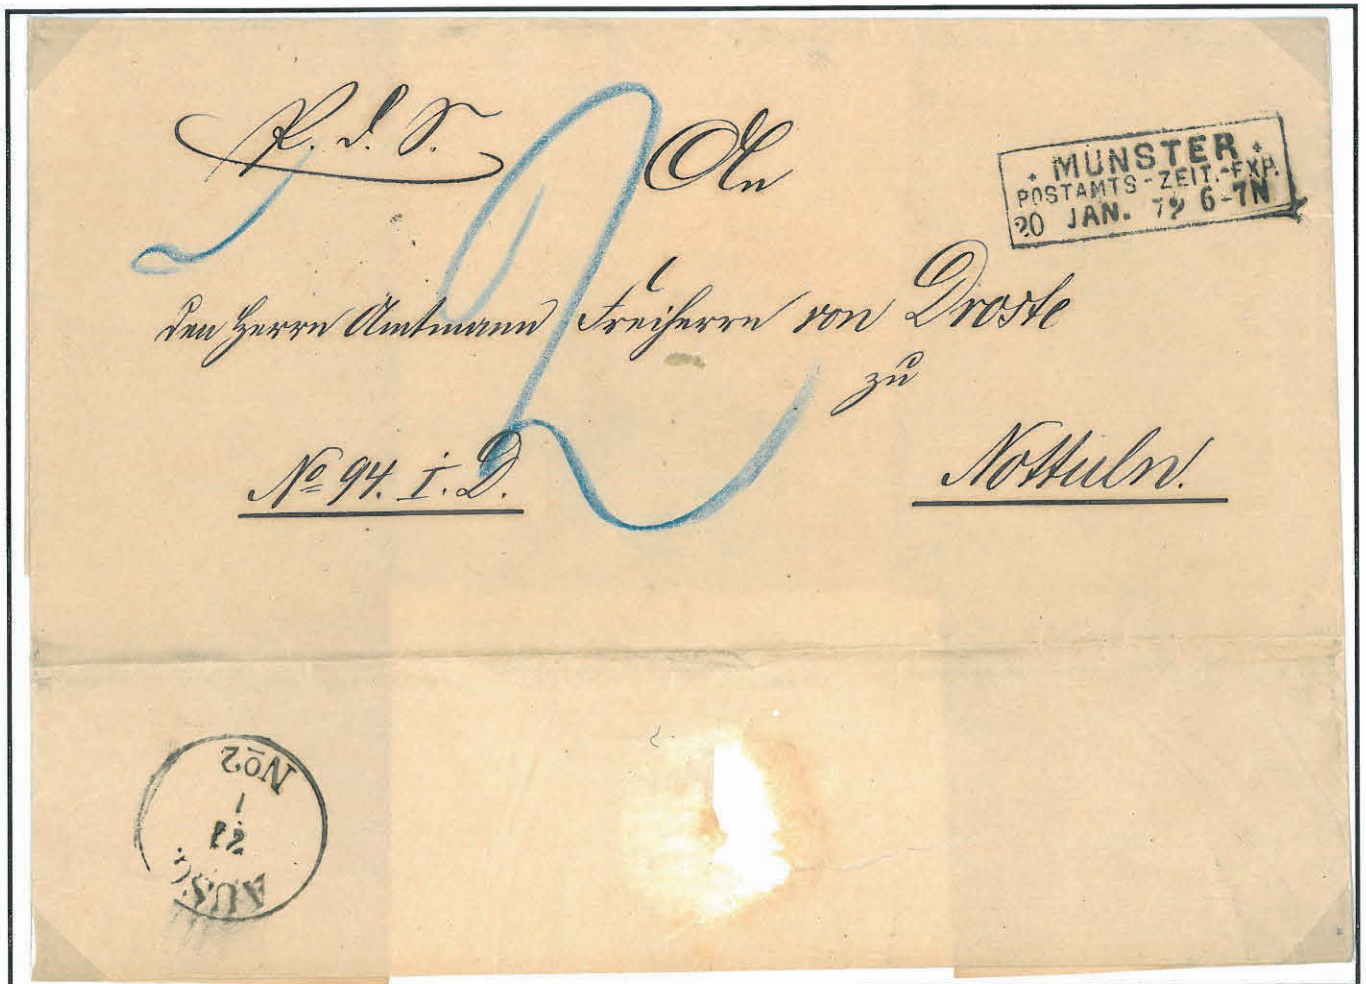 P. d. S.
An
* MÜNSTER *
POSTAMTS-ZEIT.-EXP.
20 JAN. 72 6-7N
den Herrn Amtmann Freiherrn von Droste
zu
No 94. I. D.
Nottuln.
2
AUSG.
No2